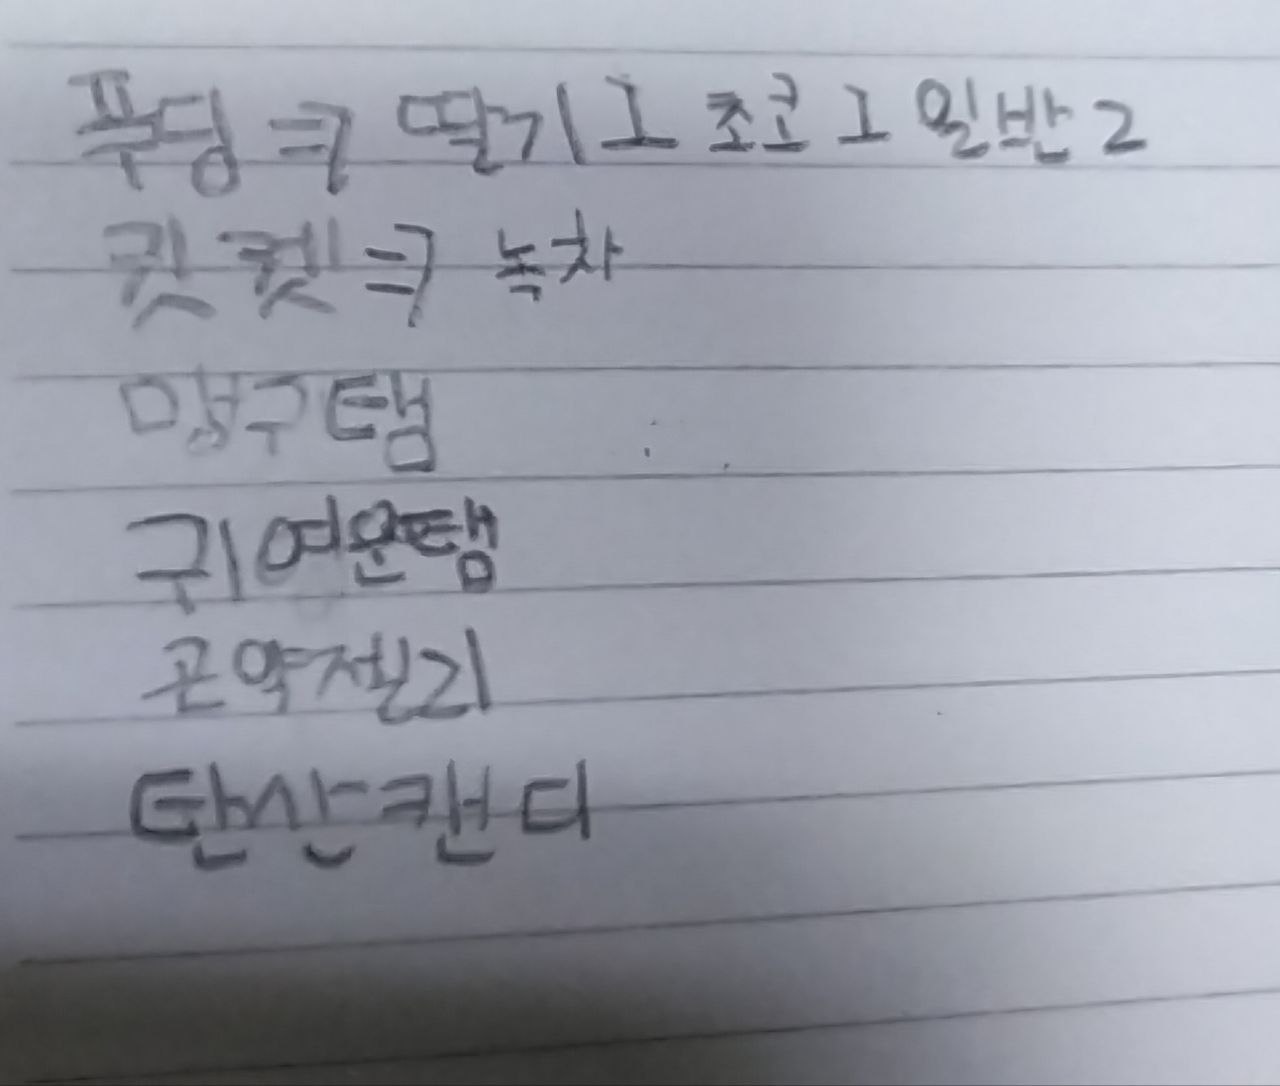 푸딩 => 딸기 1 초코 1 일반 2
킷켓 => 녹차
망구탬
귀여운탬
곤약젤리
탄산캔디